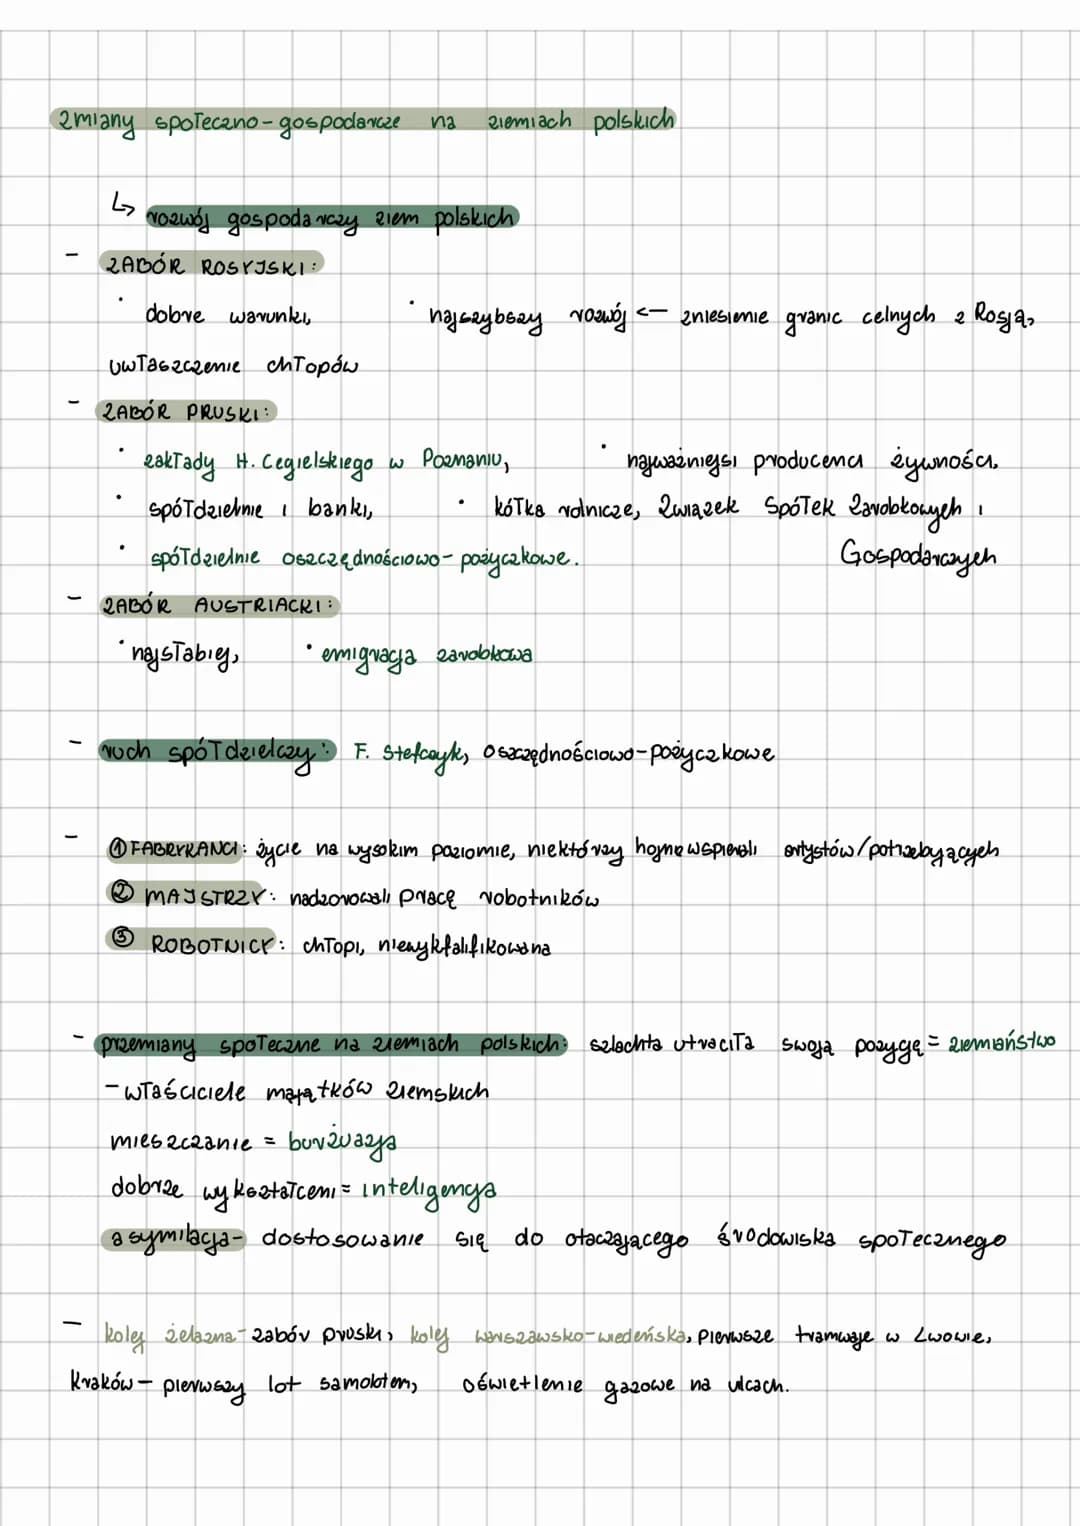 zmiany społeczno-gospodarcze na ziemiach polskich
↳ rozwój gospodarczy ziem polskich
- ZABÓR ROSYJSKI:
• dobre warunki, • najszybszy rozwój <— zniesienie granic celnych z Rosją,
uwłaszczenie chłopów
- ZABÓR PRUSKI:
• zakłady H. Cegielskiego w Poznaniu, • najważniejsi producenci żywności.
• spółdzielnie i banki, • kółka rolnicze, Związek Spółek Zarobkowych i
• spółdzielnie oszczędnościowo-pożyczkowe. Gospodarczych
- ZABÓR AUSTRIACKI:
• najsłabiej, • emigracja zarobkowa
- ruch spółdzielczy: F. Stefczyk, oszczędnościowo-pożyczkowe
- ① FABRYKANCI: życie na wysokim poziomie, niektórzy hojne wspierali artystów/potrzebujących
② MAJSTRZY: nadzorowali pracę robotników
③ ROBOTNICY: chłopi, niewykfalifikowana
- przemiany społeczne na ziemiach polskich: szlachta utraciła swoją pozygę = ziemiaństwo
- właściciele majątków ziemskich
mieszczanie = burżuazja
dobrze wykształceni = inteligencja
asymilacja- dostosowanie się do otaczającego środowiska społecznego
- kolej żelazna - zabór pruski, kolej warszawsko-wiedeńska, pierwsze tramwaje w Lwowie,
Kraków - pierwszy lot samolotem, oświetlenie gazowe na ulcach.